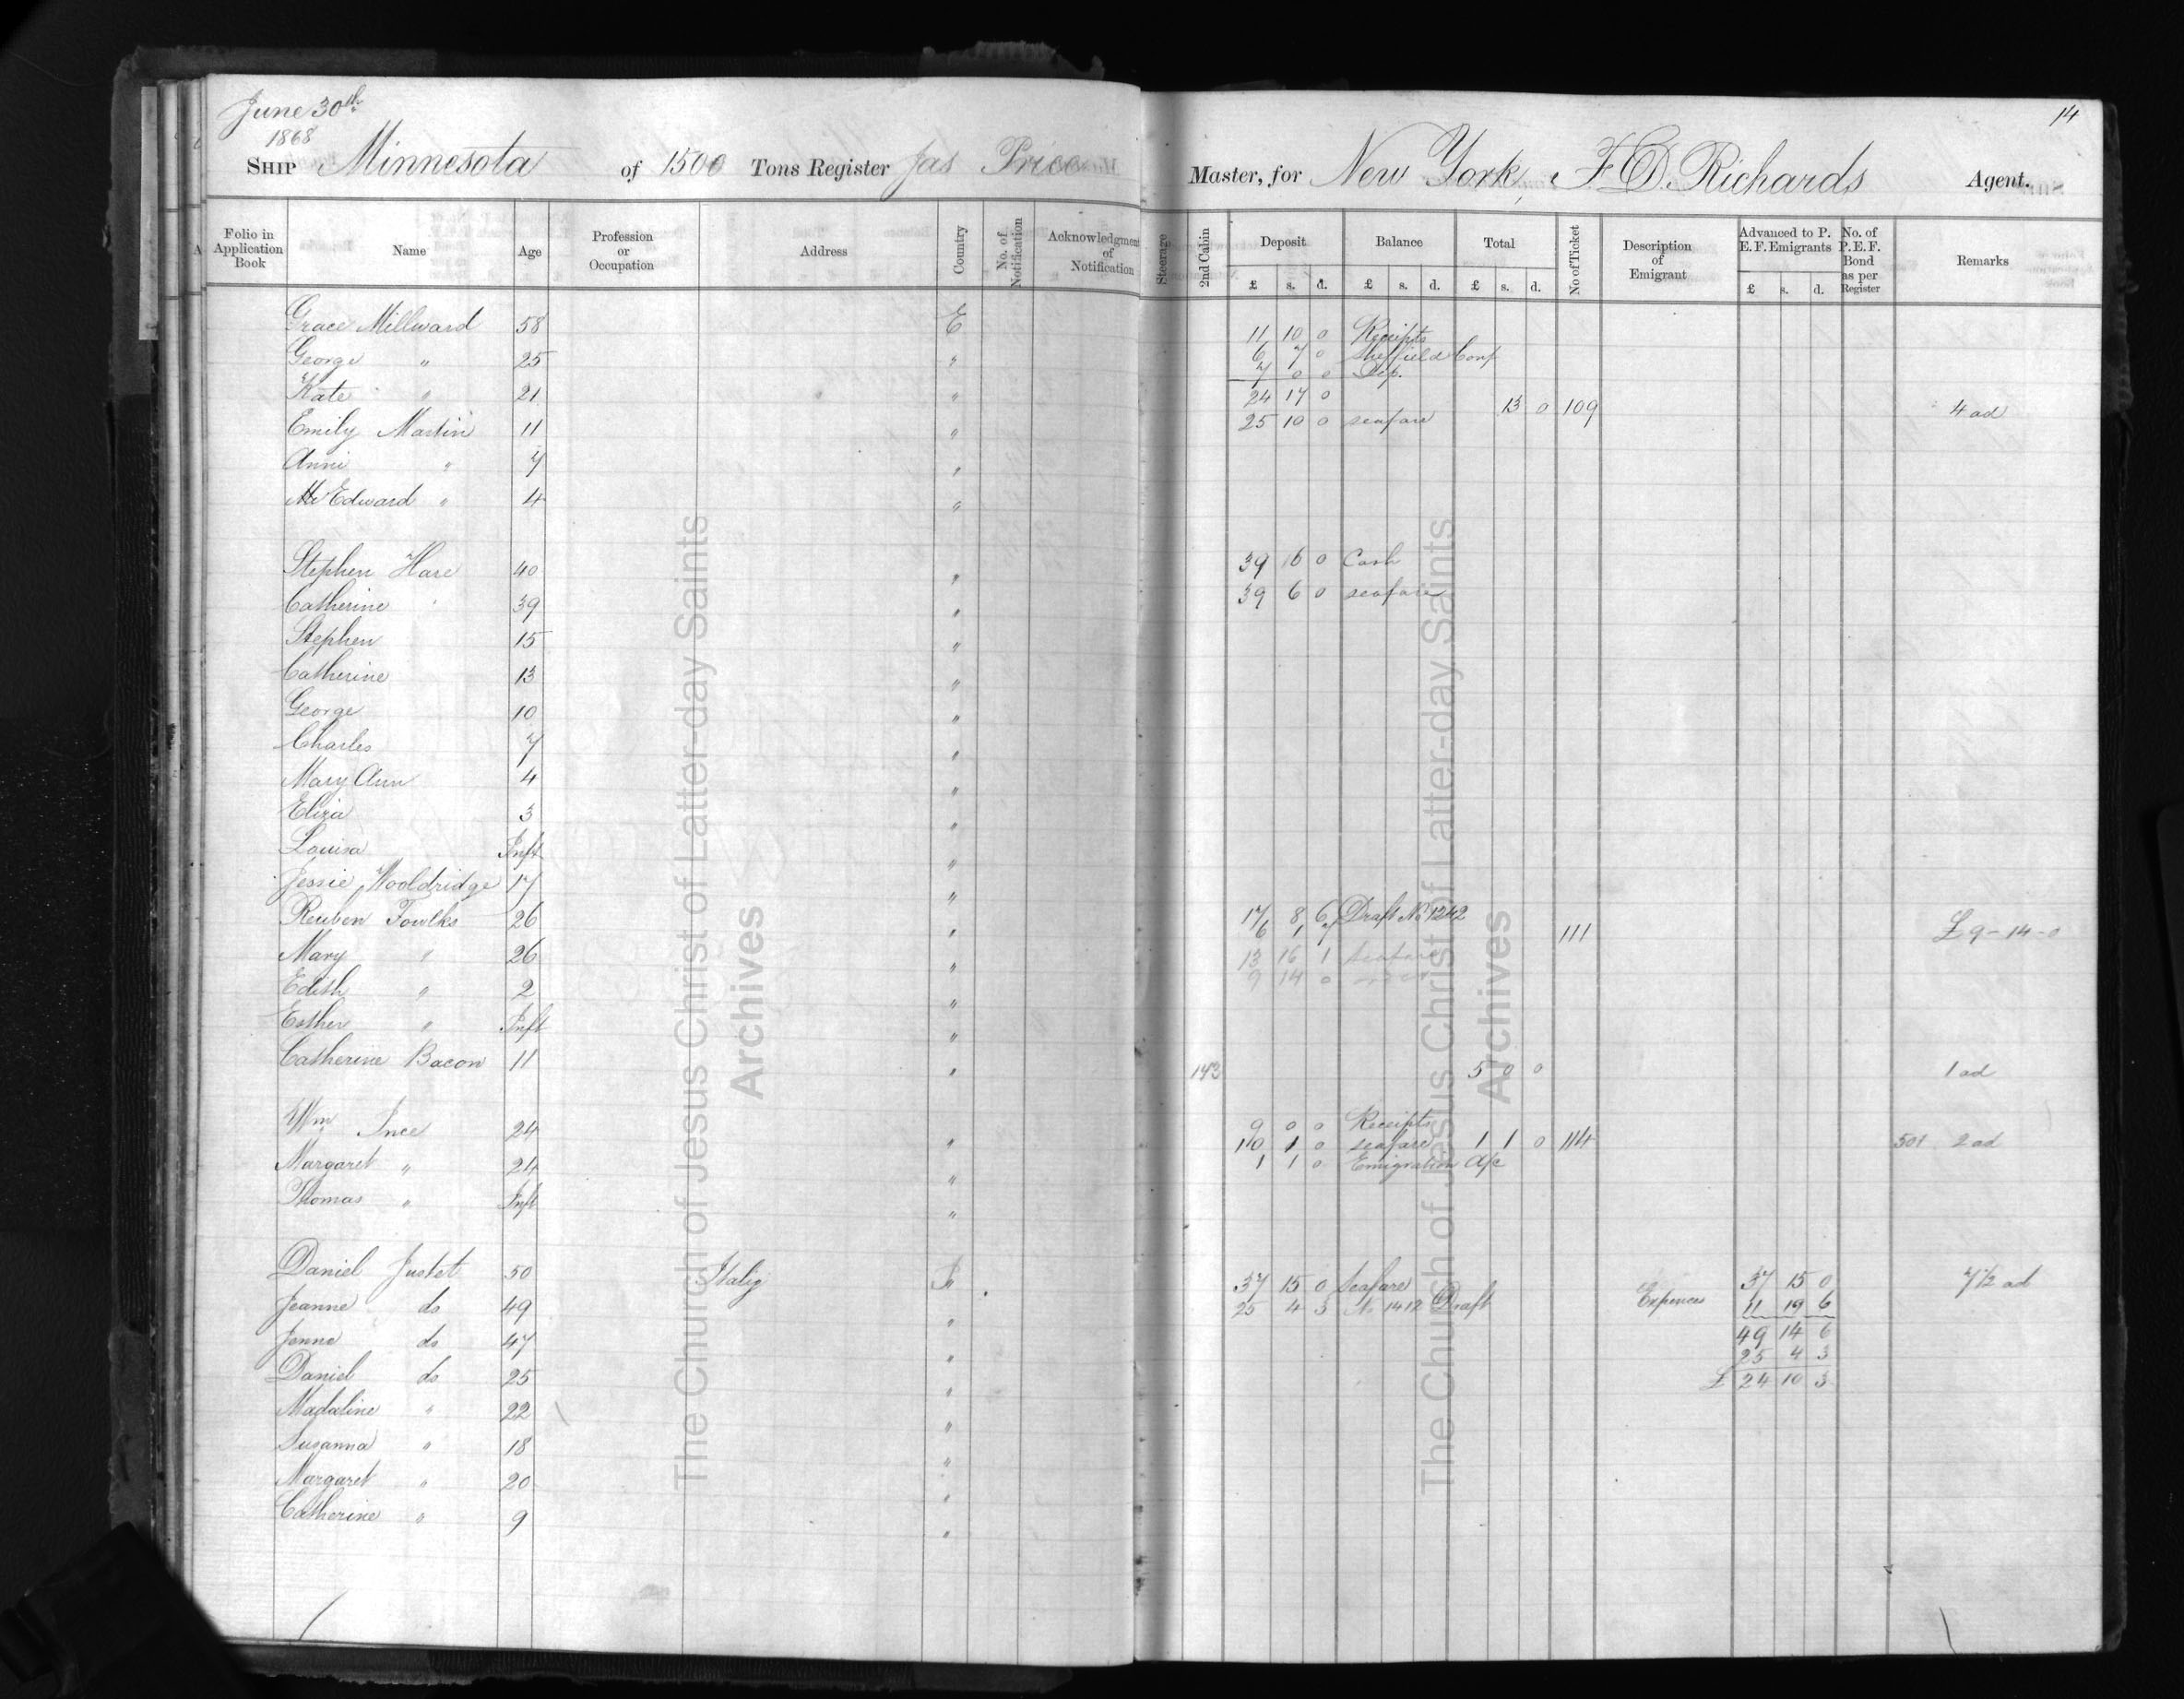 June 30th
1868
14
SHIP Minnesota of 1500 Tons Register Jas Price Master, for New York, F. D. Richards Agent.
Folio in Application Book Name Age Profession or Occupation Address Country No. of Notification Acknowledgment of Notification Steerage 2nd Cabin Deposit Balance Total No of Ticket Description of Emigrant Advanced to P. E. F. Emigrants No. of P. E. F. Bond as per Register Remarks
£ s. d. £ s. d. £ s. d. £ s. d.
Grace Millward 58 E 11 10 0 Receipts
George " 25 " 6 7 0 Sheffield Conf
7 0 0 Dep.
Kate " 21 " 24 17 0
13 0 109 4 ad
Emily Martin 11 " 25 10 0 seafare
Anni " 7 "
Mr Edward " 4 "
Stephen Hare 40 " 39 16 0 Cash
Catherine " 39 " 39 6 0 seafare
Stephen 15 "
Catherine 13 "
George 10 "
Charles 7 "
Mary Ann 4 "
Eliza 3 "
Louisa Inft "
Jessie Wooldridge 17 "
Reuben Fowlks 26 " 17 8 6 Draft No 1242
6 1 7 111 £9-14-0
Mary " 26 " 13 16 1 seafare
Edith " 2 " 9 14 0
Esther " Inft "
Catherine Bacon 11 " 143 5 0 0 1 ad
Wm Ince 24 " 9 0 0 Receipts
10 1 0 seafare 1 1 0 114 501 2 ad
Margaret " 24 " 1 1 0 Emigration A/c
Thomas " Inft "
Daniel Justet 50 Italy 37 15 0 Seafare 37 15 0 7 1/2 ad
Jeanne do 49 " 25 4 3 No 1412 Draft Expences 11 19 6
Jenne do 47 " 49 14 6
25 4 3
Daniel do 25 " £ 24 10 3
Madaline " 22 "
Susanna " 18 "
Margaret " 20 "
Catherine " 9 "
The Church of Jesus Christ of Latter-day Saints
Archives
The Church of Jesus Christ of Latter-day Saints
Archives